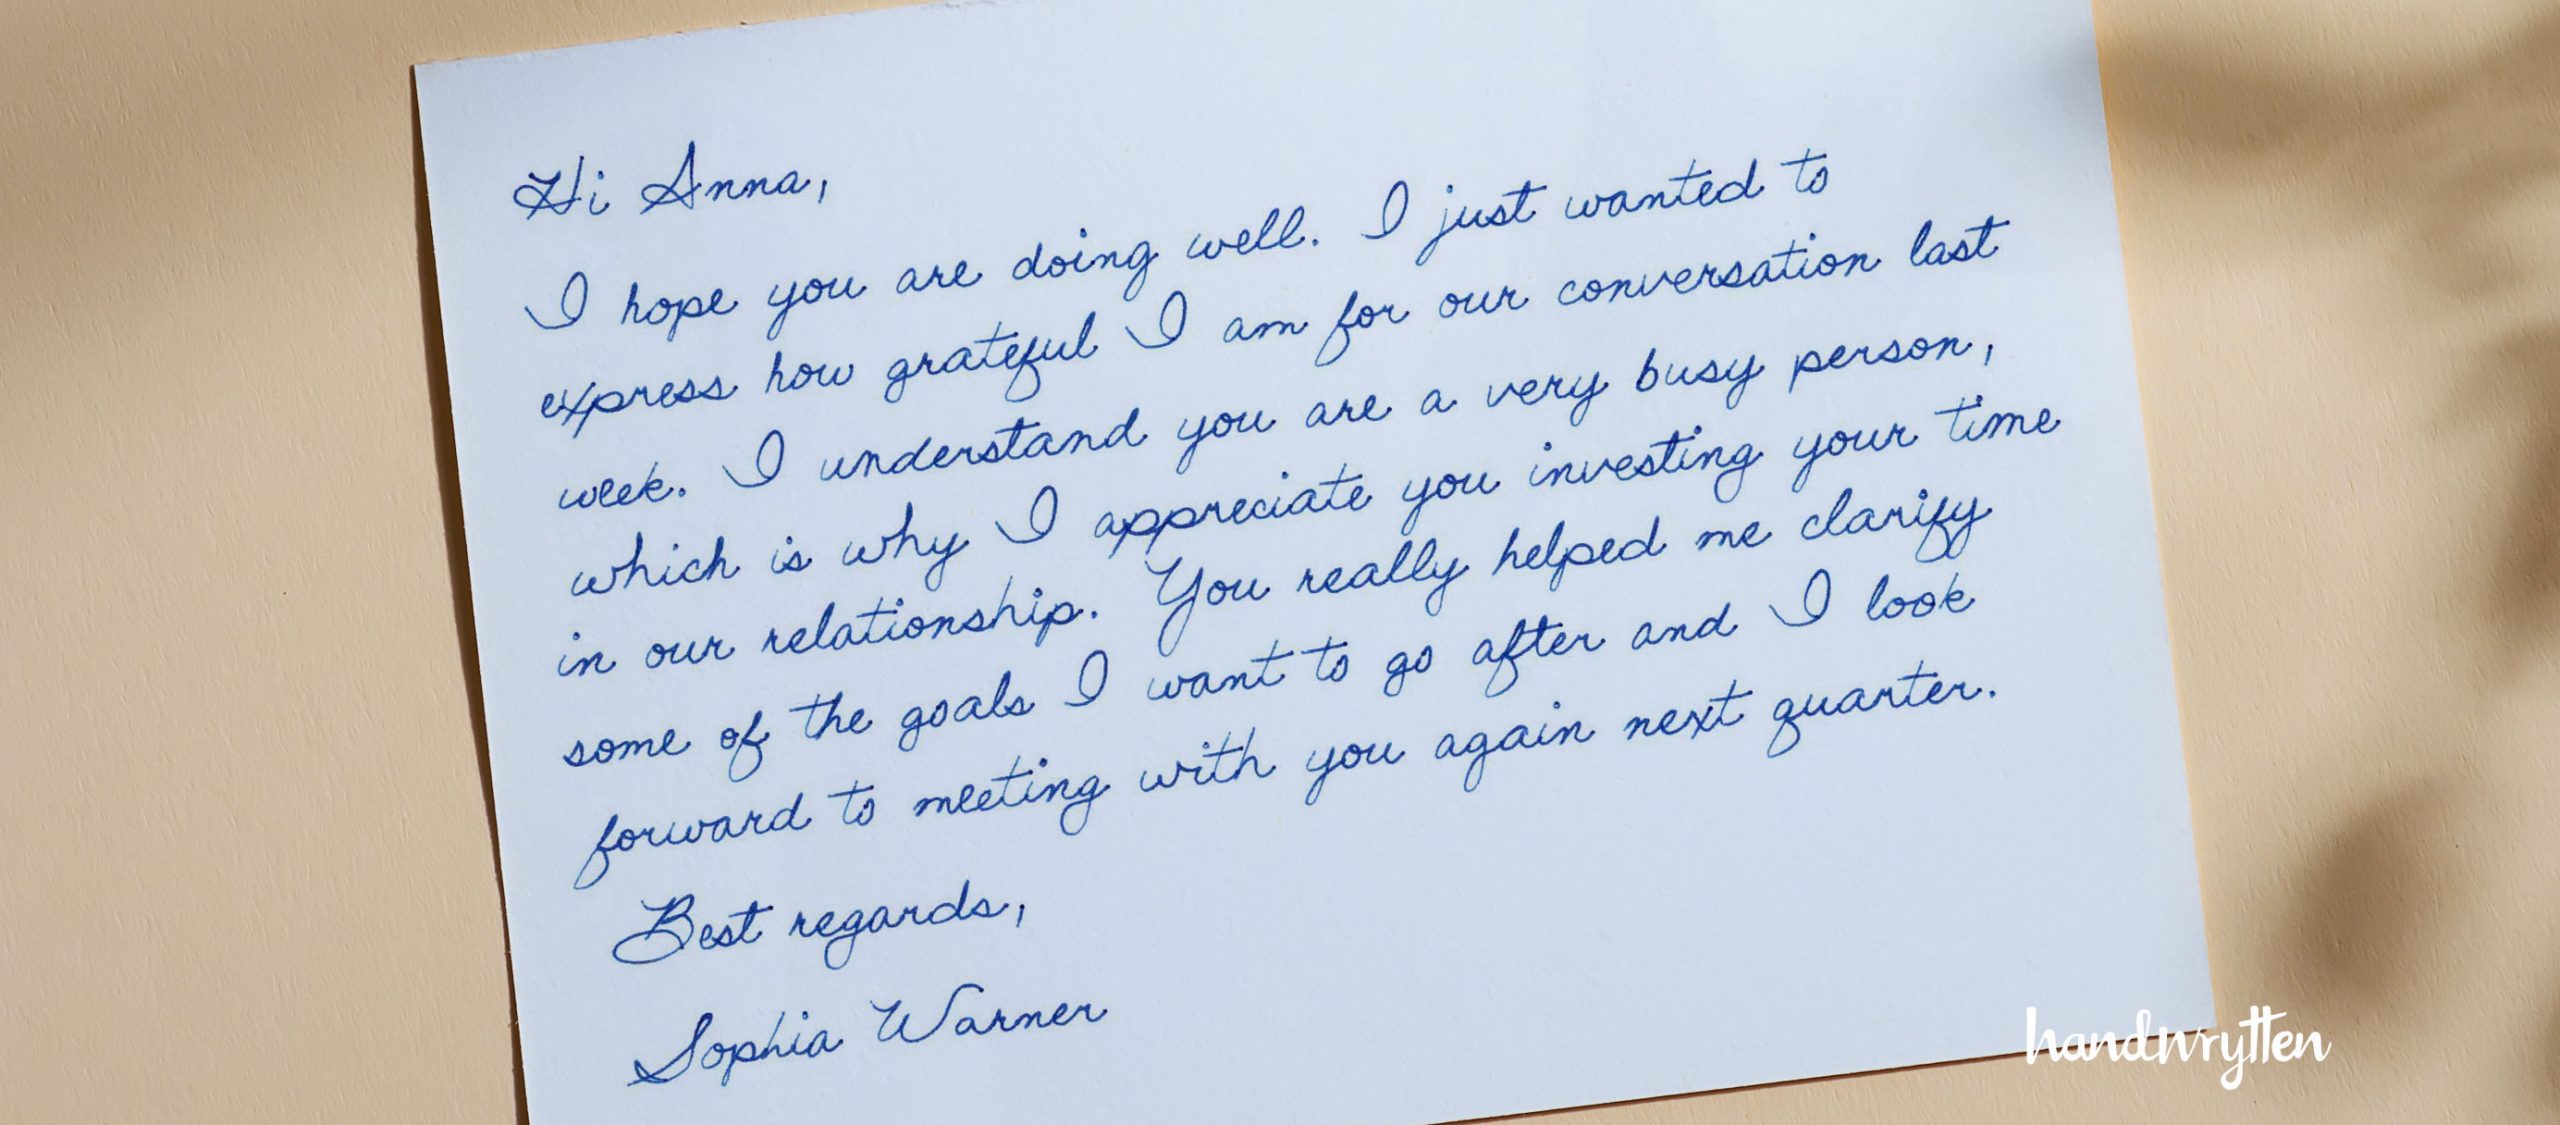 Hi Anna,
I hope you are doing well. I just wanted to
express how grateful I am for our conversation last
week. I understand you are a very busy person,
which is why I appreciate you investing your time
in our relationship. You really helped me clarify
some of the goals I want to go after and I look
forward to meeting with you again next quarter.
Best regards,
Sophia Warner
handwrytten